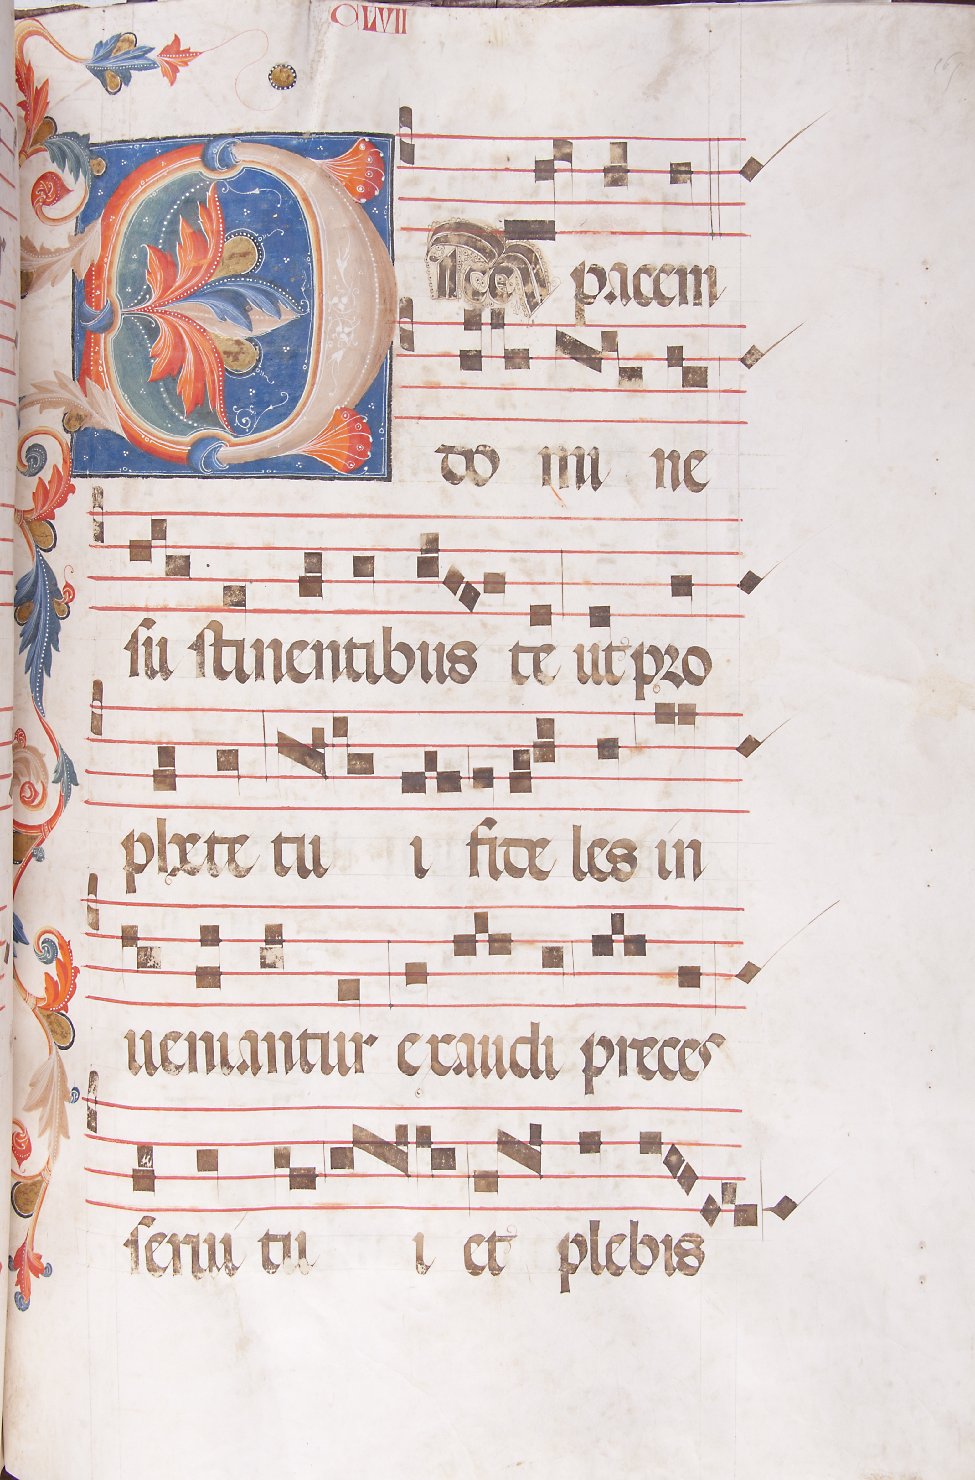 CLVII
Da pacem
do mi ne
su stinentibus te ut pro
phete tu i fide les in
ueniantur exaudi preces
serui tu i et plebis